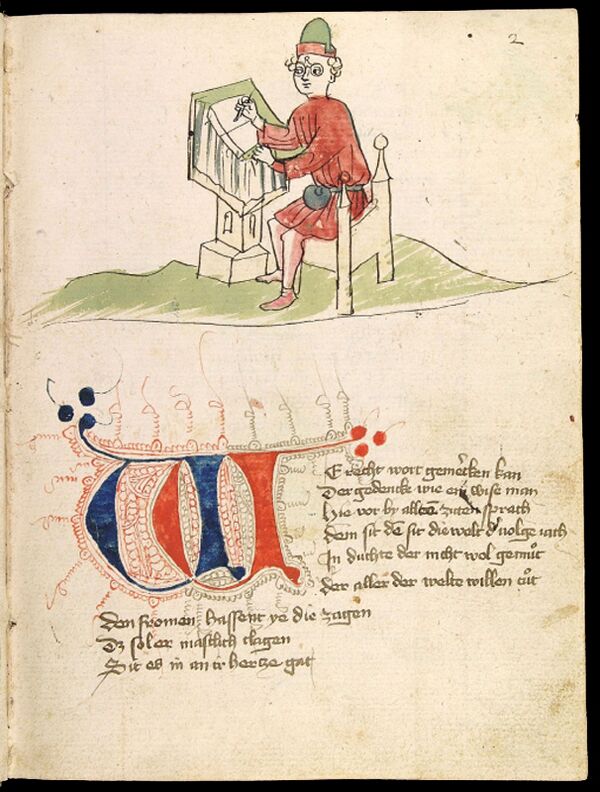 2
WE recht wort gemerken kan
Der gedencke wie ein wise man
Hie vor by alter ziten sprach
Dem sit de sit die welt d' volge iach
In duchte der nicht wol gemut
der aller der welte willen tůt
den fromen hassent ye die zagen
Dz sol er mäslich clagen
Sit es in an ir hertze gat